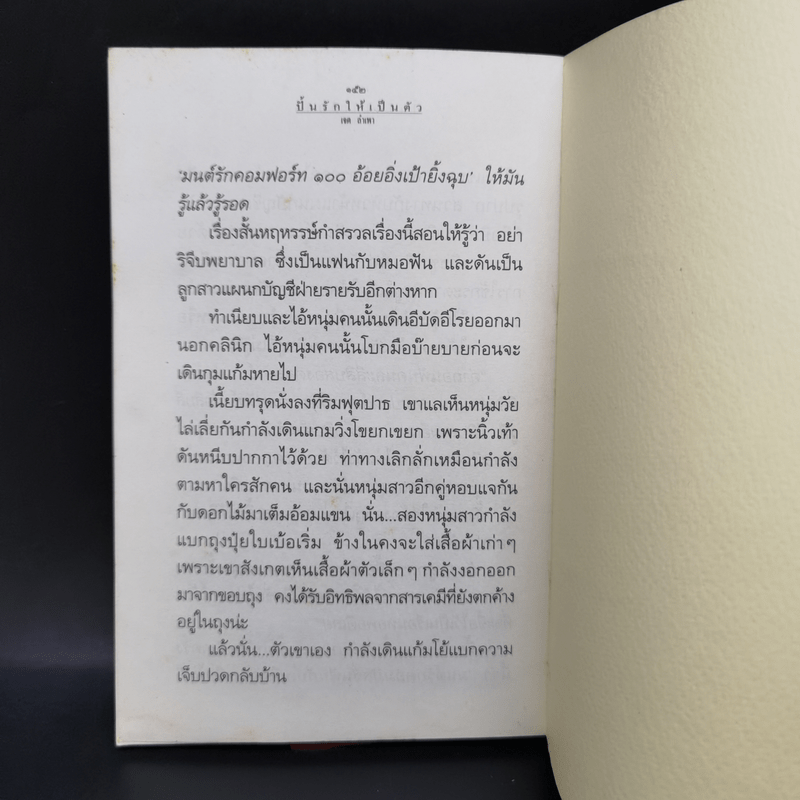 ๑๕๒
ปั้นรักให้เป็นตัว
เจต ลำเพา
'มนต์รักคอมฟอร์ท ๑๐๐ อ้อยอิ่งเป้ายิ้งฉุบ' ให้มัน
รู้แล้วรู้รอด
เรื่องสั้นหฤหรรษ์กำสรวลเรื่องนี้สอนให้รู้ว่า อย่า
ริจีบพยาบาล ซึ่งเป็นแฟนกับหมอฟัน และดันเป็น
ลูกสาวแผนกบัญชีฝ่ายรายรับอีกต่างหาก
ทำเนียบและไอ้หนุ่มคนนั้นเดินอีบัดอีโรยออกมา
นอกคลินิก ไอ้หนุ่มคนนั้นโบกมือบ๊ายบายก่อนจะ
เดินกุมแก้มหายไป
เนี้ยบทรุดนั่งลงที่ริมฟุตปาธ เขาแลเห็นหนุ่มวัย
ไล่เลี่ยกันกำลังเดินแกมวิ่งโขยกเขยก เพราะนิ้วเท้า
ดันหนีบปากกาไว้ด้วย ท่าทางเลิกลั่กเหมือนกำลัง
ตามหาใครสักคน และนั่นหนุ่มสาวอีกคู่หอบแจกัน
กับดอกไม้มาเต็มอ้อมแขน นั่น...สองหนุ่มสาวกำลัง
แบกถุงปุ๋ยใบเบ้อเริ่ม ข้างในคงจะใส่เสื้อผ้าเก่าๆ
เพราะเขาสังเกตเห็นเสื้อผ้าตัวเล็กๆ กำลังงอกออก
มาจากขอบถุง คงได้รับอิทธิพลจากสารเคมีที่ยังตกค้าง
อยู่ในถุงน่ะ
แล้วนั่น...ตัวเขาเอง กำลังเดินแก้มโย้แบกความ
เจ็บปวดกลับบ้าน